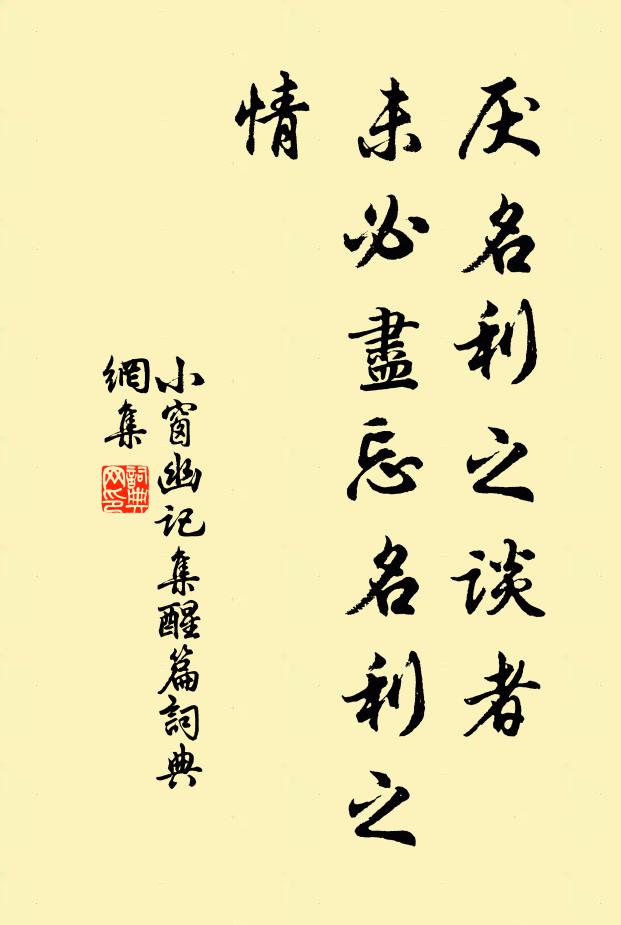 厌名利之谈者
未必盡忘名利之
情
小窗幽记集醒篇詞典
網集
詞典
网印